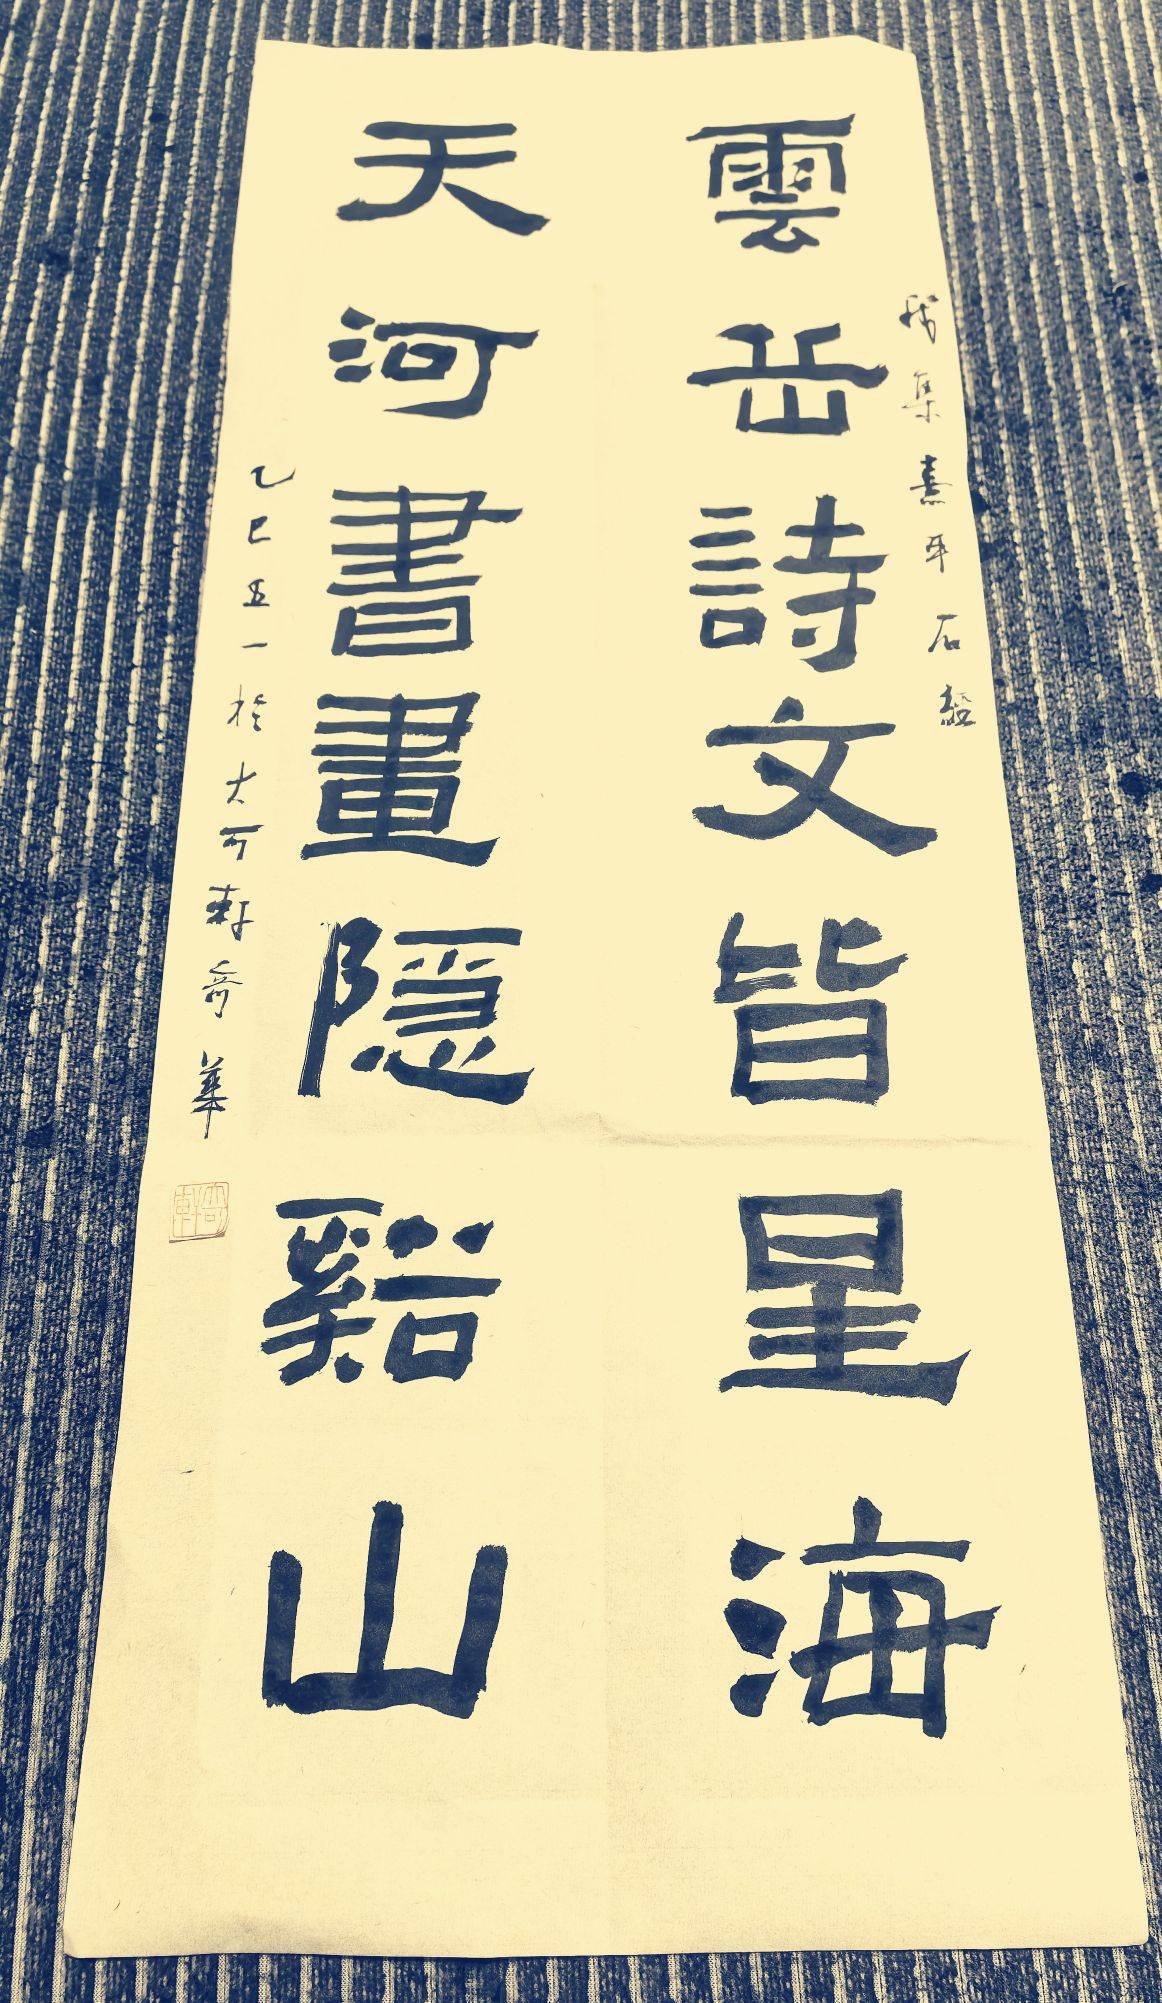 集熹平石經
雲岳詩文皆星海
天河書畫隱谿山
乙巳五一於大可軒奇華